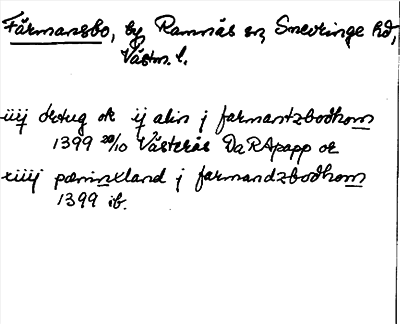 Färmansbo, by Ramnäs sn, Snevringe hd,
Västm. l.
iiij örtug ok ij alin j farmantzbodhom
1399 20/10 Västerås DaRApapp or
xiiij pæninxland j farmandzbodhom
1399 ib.